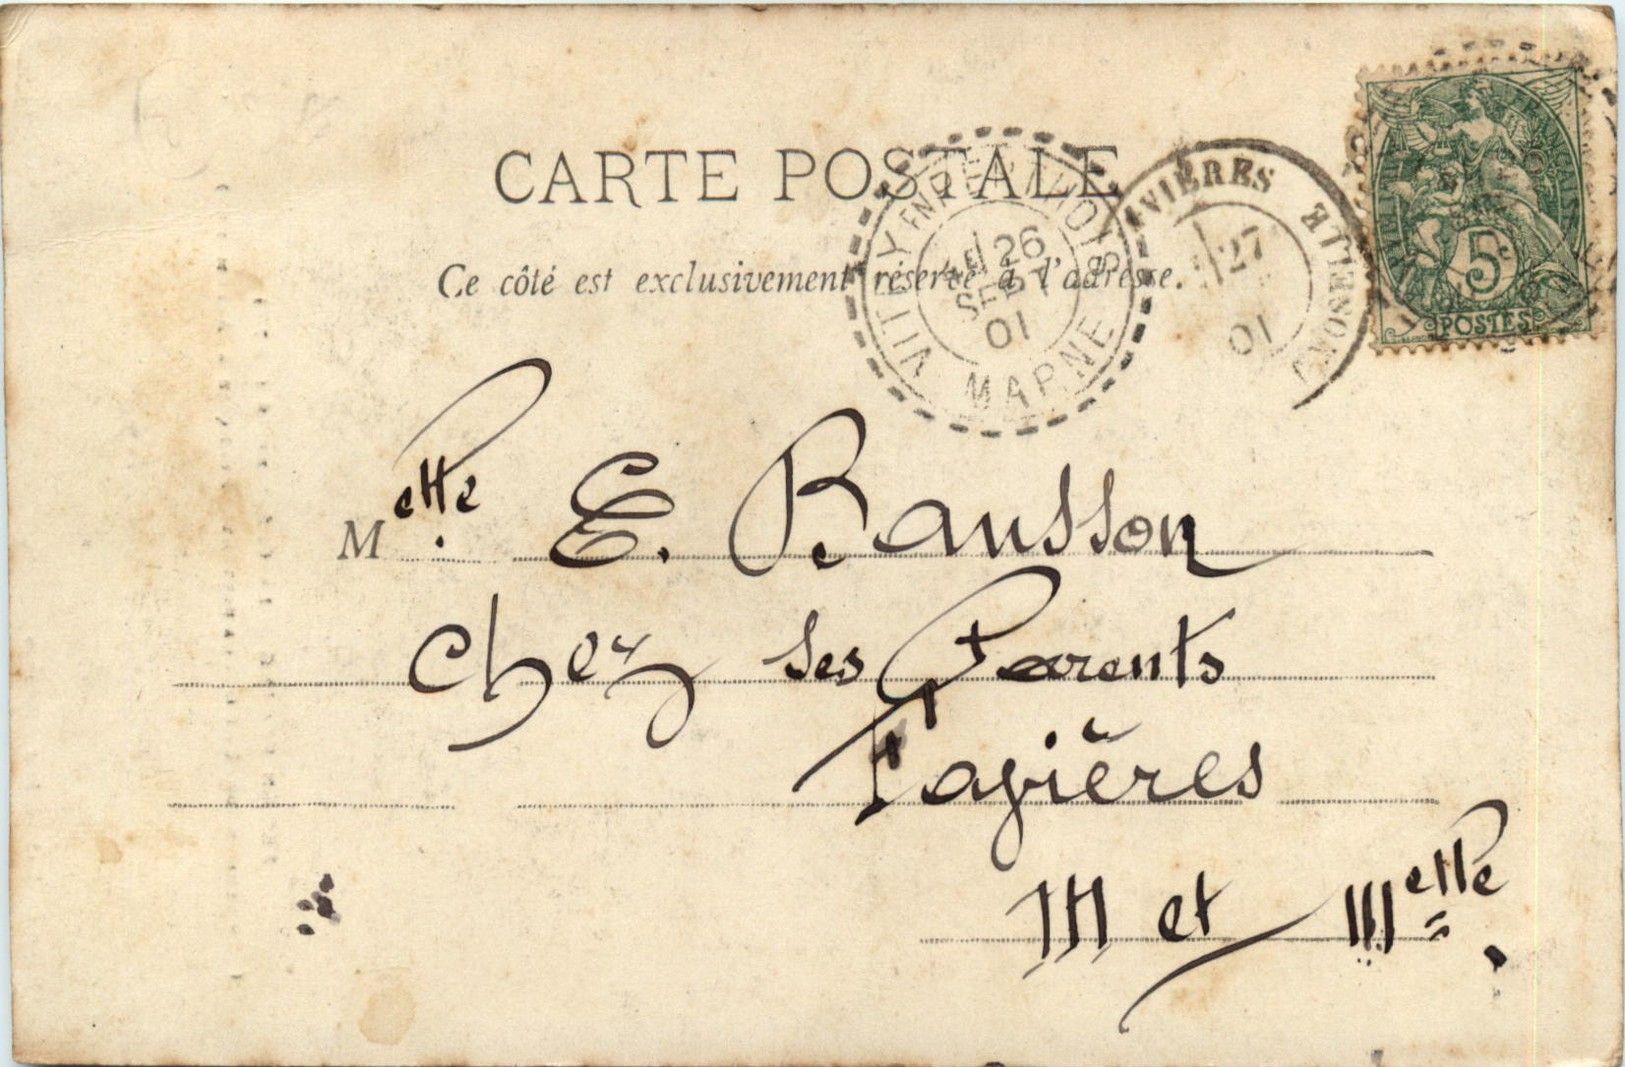 CARTE POSTALE
Ce côté est exclusivement réservé à l'adresse.
VITRY EN PERTHOIS
26
SEPT
01
MARNE
27
01
5
POSTES
Melle. E. Rausson
chez ses Parents
Fagières
M et Melle